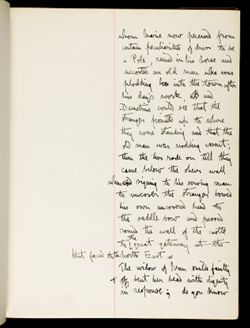 whom Marie now perceived from
certain peculiarities of dress to be
a Pole, reined in his horse and
accosted an old man who was
plodding into the town after
his day's work and
Demetrius could see that the
stranger pointed up to where
they were standing and that the
old man was nodding assent;
then the two rode on till they
came below the sheer wall
when signing to his serving man
to uncover the stranger bowed
his own uncovered head to
the saddle bow and passed
round the wall of the castle
to the great gateway at the
that faced to the North East.
The widow of Ivan could faintly
but her head with dignity
in response; do you know